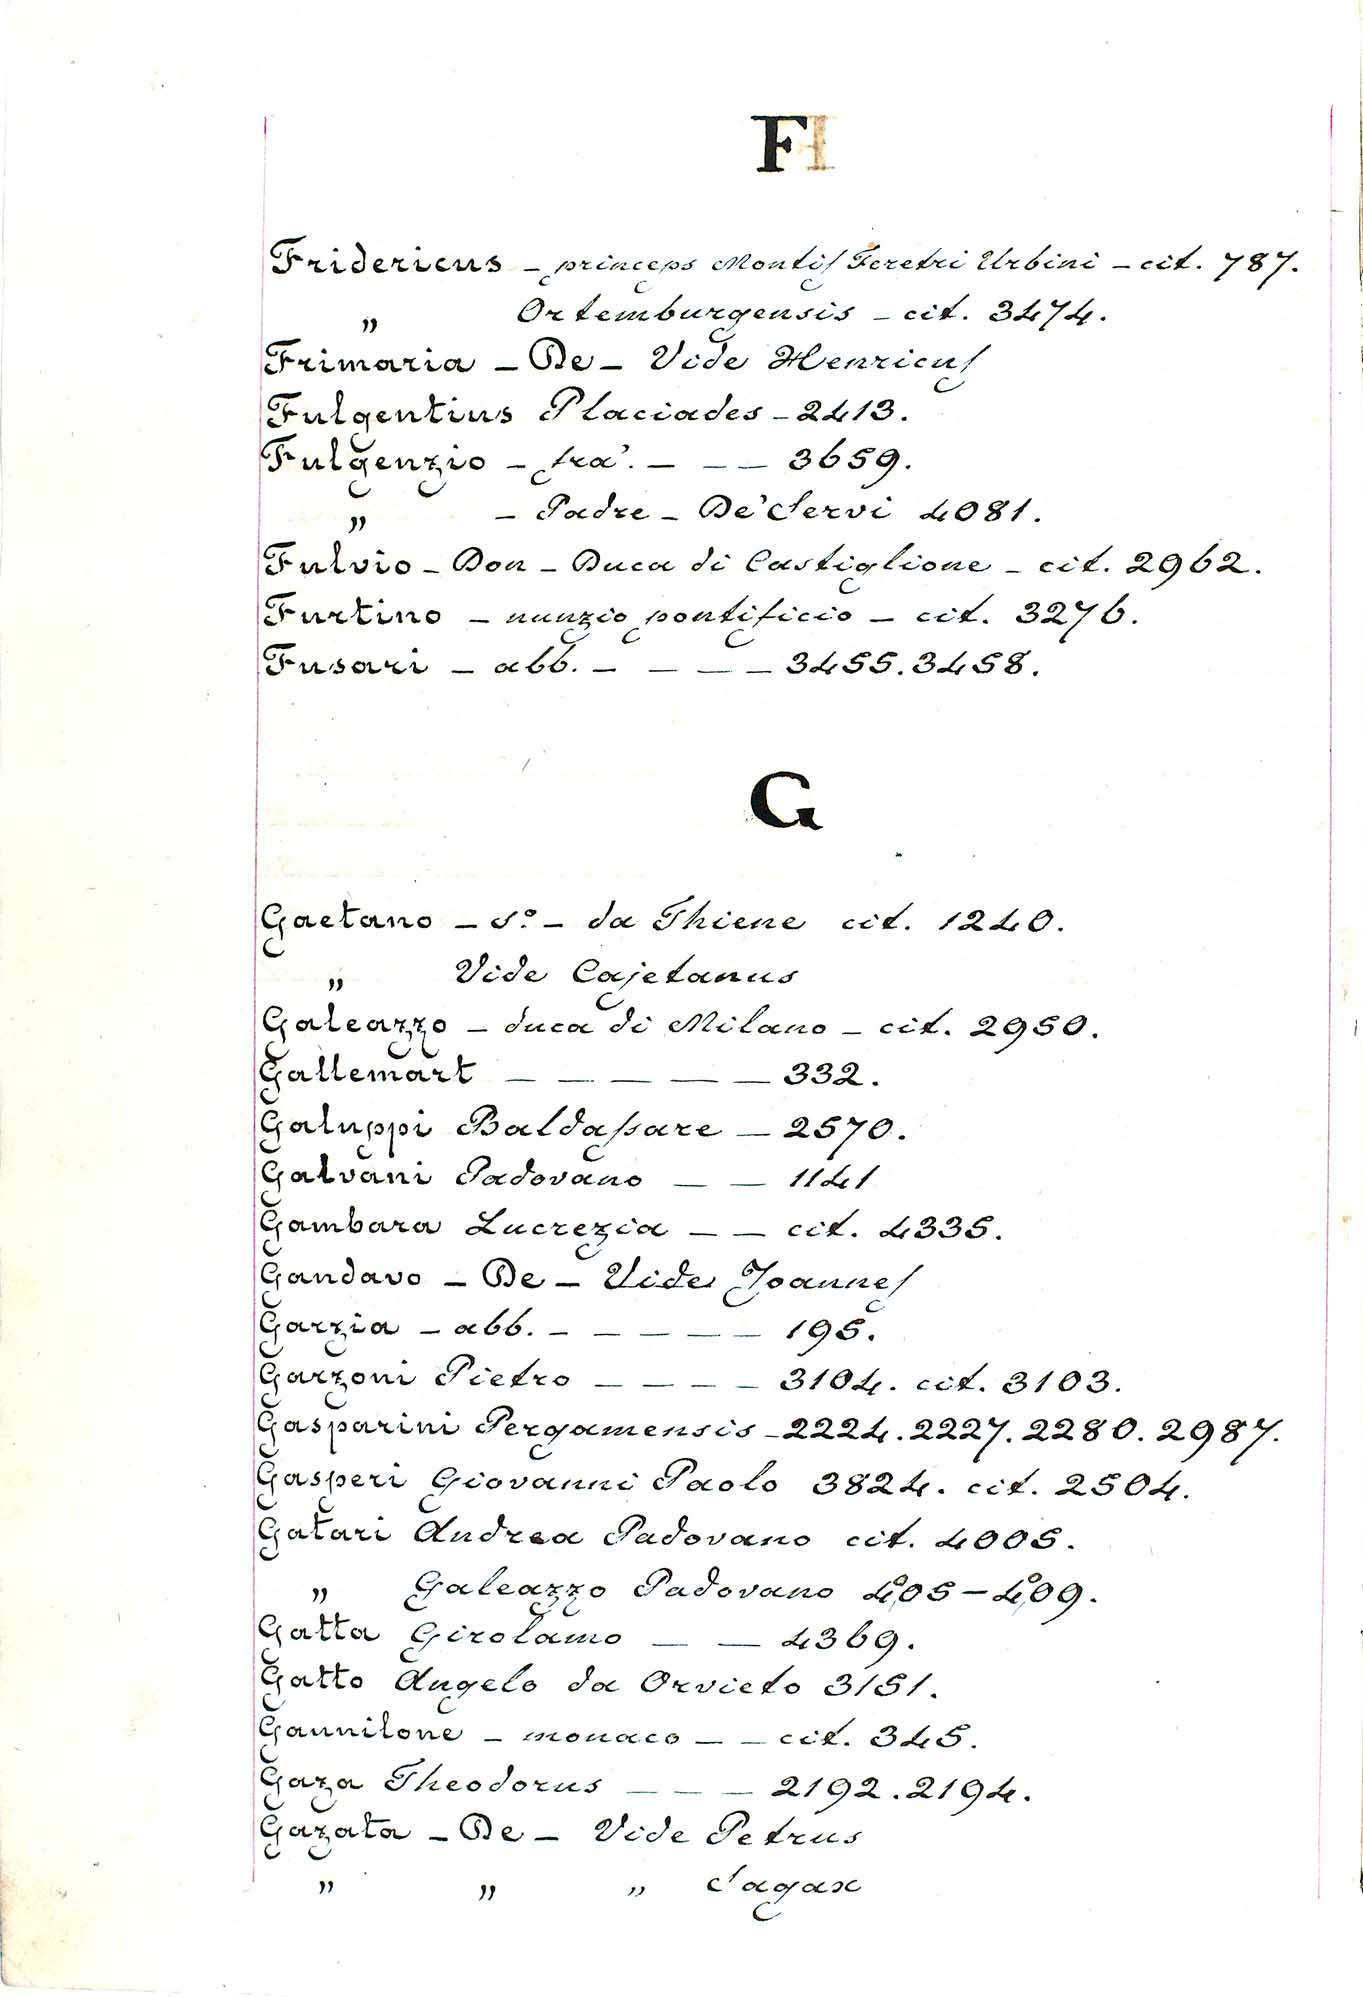 F
Fridericus – princeps Montis Feretri Urbini – cit. 787.
„ Ortemburgensis – cit. 3474.
Frimaria – De – Vide Henricus
Fulgentius Placiades – 2413.
Fulgenzio – fra'. – – – 3659.
„ – Padre – De' Servi 4081.
Fulvio – Don – Duca di Castiglione – cit. 2962.
Furtino – nunzio pontificio – cit. 3276.
Fusari – abb. – – – – 3455. 3458.
G
Gaetano – S.º – da Thiene cit. 1240.
„ Vide Cajetanus
Galeazzo – duca di Milano – cit. 2950.
Gallemart – – – – – – 332.
Galuppi Baldassare – 2570.
Galvani Padovano – – 1141
Gambara Lucrezia – – cit. 4335.
Gandavo – De – Vide Joannes
Garzia – abb. – – – – – 195.
Garzoni Pietro – – – – 3104. cit. 3103.
Gasparini Pergamensis – 2224. 2227. 2280. 2987.
Gasperi Giovanni Paolo 3824. cit. 2504.
Gatari Andrea Padovano cit. 4005.
„ Galeazzo Padovano 4005 – 4009.
Gatta Girolamo – – 4369.
Gatto Angelo da Orvieto 3151.
Gaunilone – monaco – – cit. 345.
Gaza Theodorus – – – 2192. 2194.
Gazata – De – Vide Petrus
„ „ „ Sagax